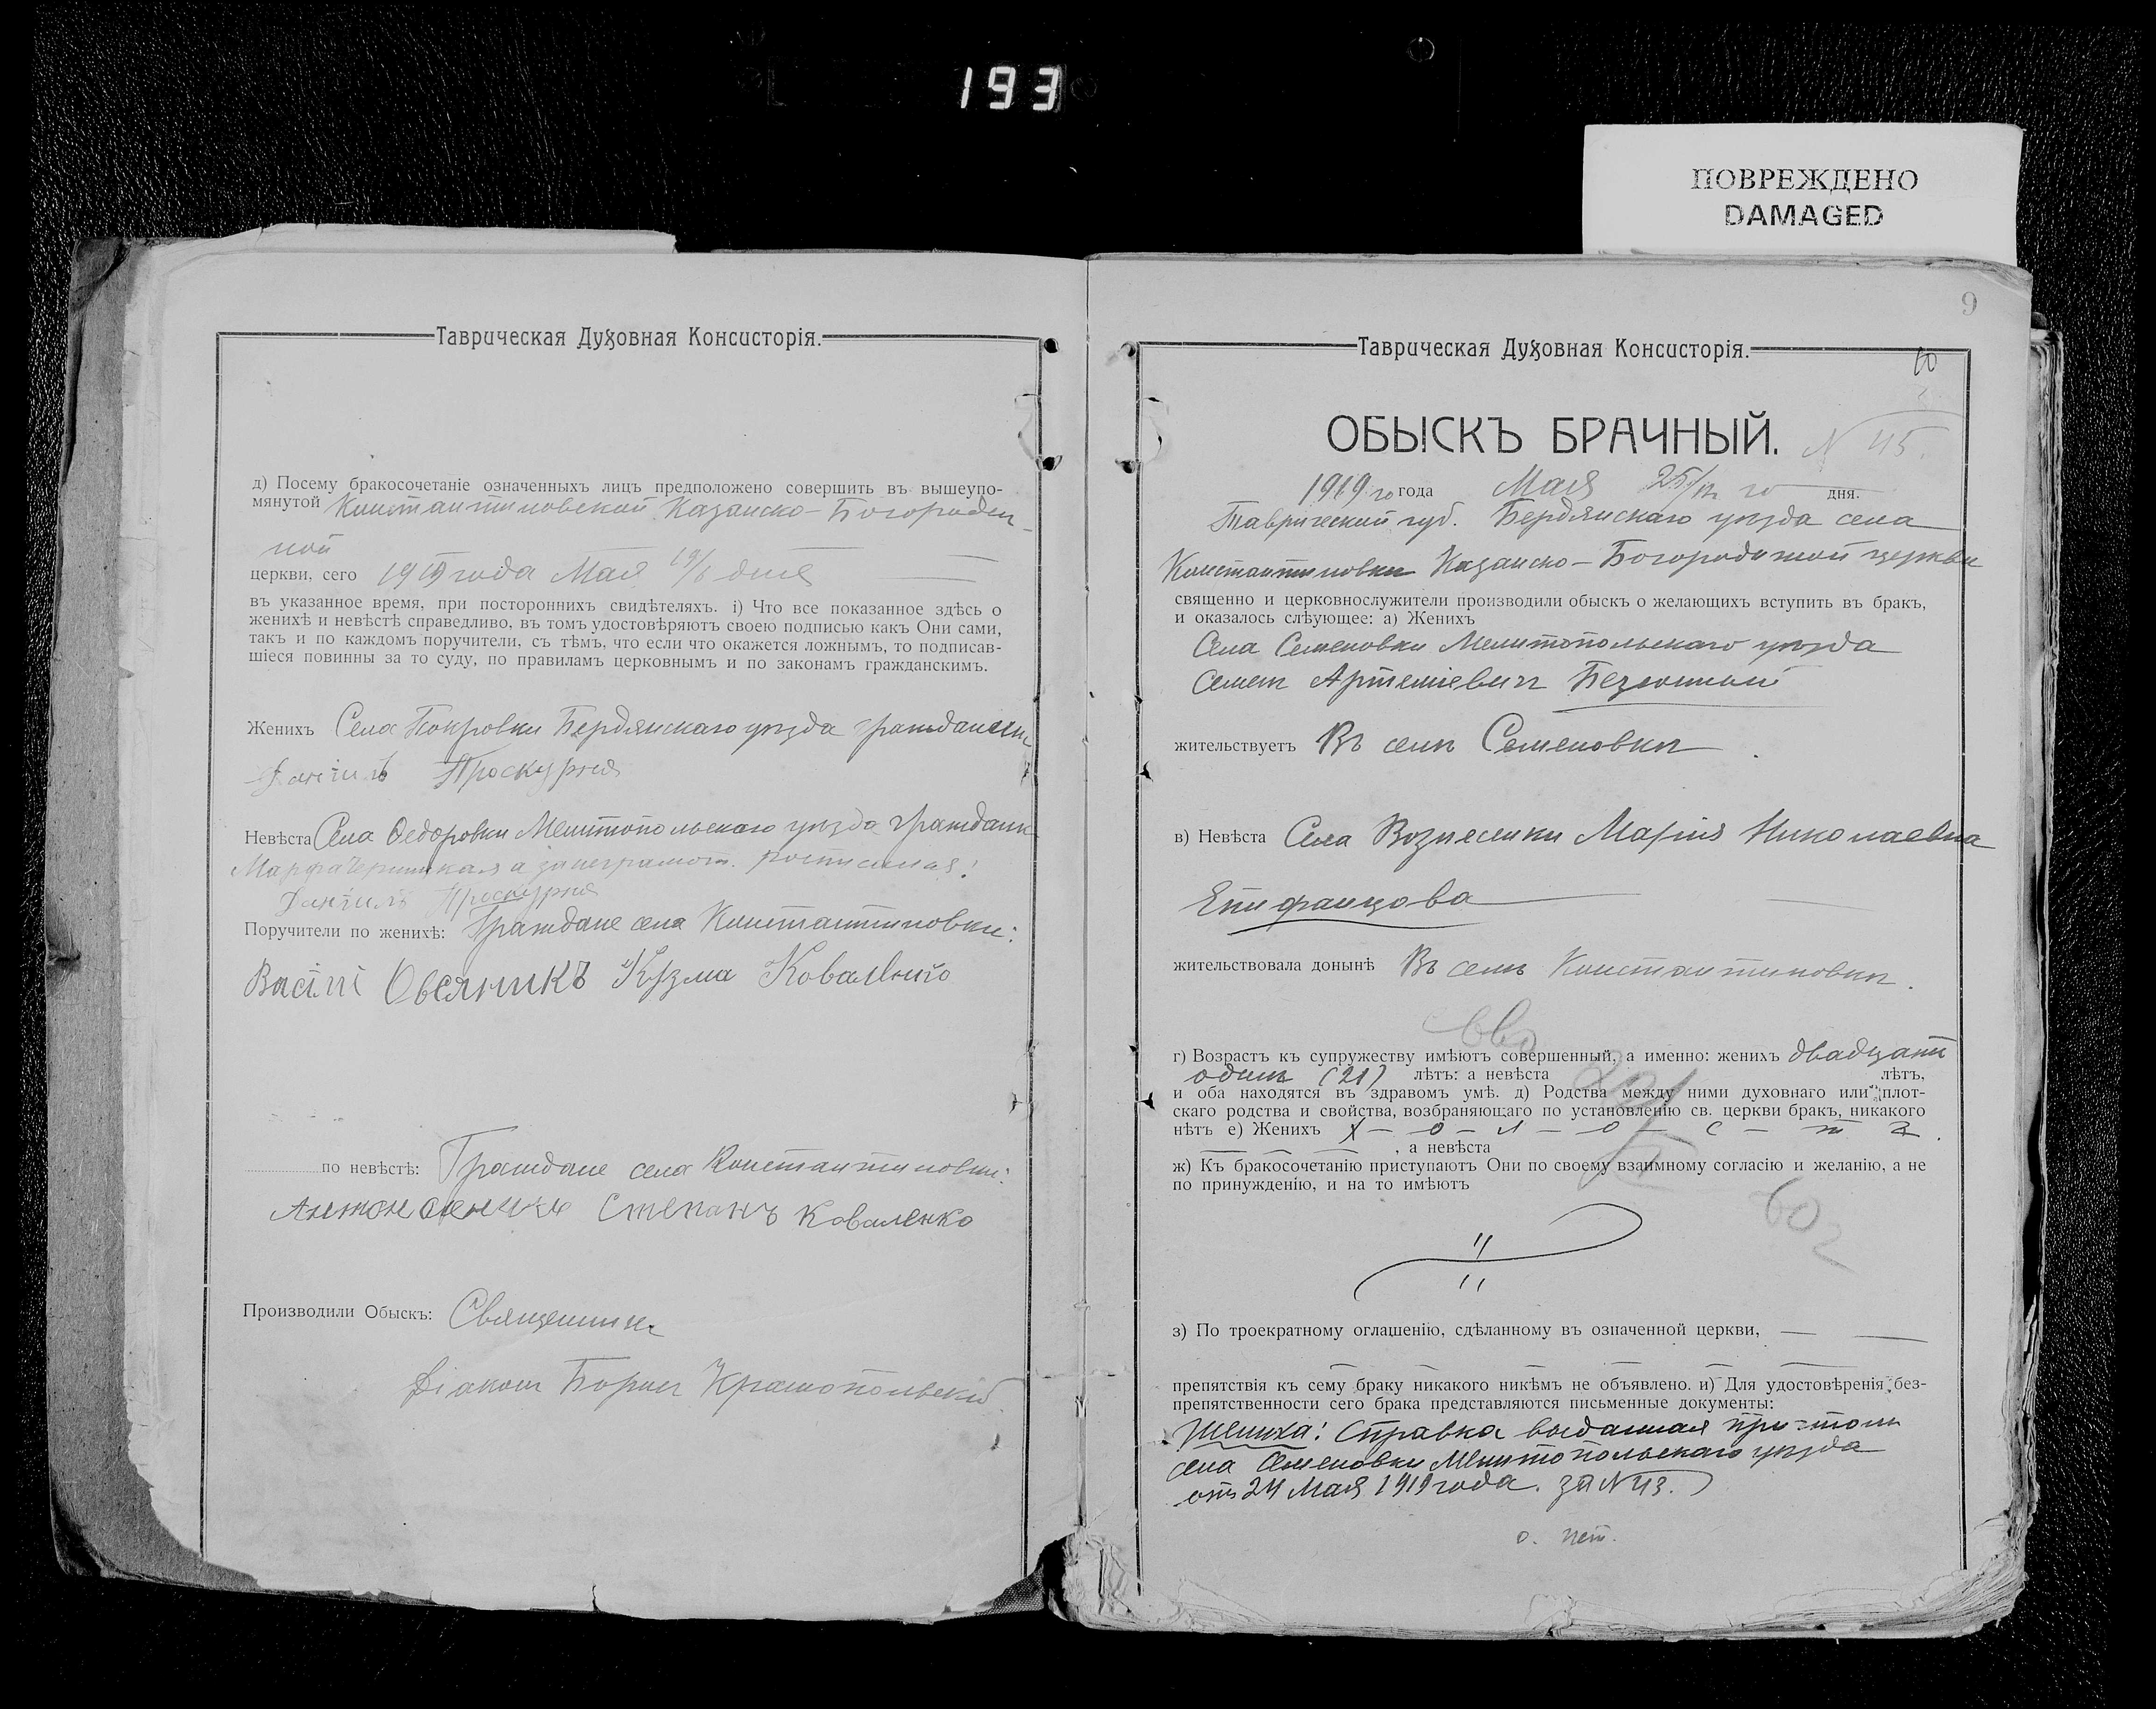 193
ПОВРЕЖДЕНО
DAMAGED
Таврическая Духовная Консисторія.
д) Посему бракосочетаніе означенныхъ лицъ предположено совершить въ вышеупо-
мянутой Константиновской Казанско-Богородич-
ной
церкви, сего 1919 года Мая 19/6 дня
въ указанное время, при постороннихъ свидѣтеляхъ. і) Что все показанное здѣсь о
женихѣ и невѣстѣ справедливо, въ томъ удостовѣряютъ своею подписью какъ Они сами,
такъ и по каждомъ поручители, съ тѣмъ, что если что окажется ложнымъ, то подписав-
шіеся повинны за то суду, по правиламъ церковнымъ и по законамъ гражданскимъ.
Женихъ Села Покровки Бердянскаго уѣзда гражданинъ
Даніилъ Проскурня
Невѣста Села Федоровки Мелитопольскаго уѣзда гражданк
Марфа а за неграмот.
Даніилъ Проскурня
Поручители по женихѣ: Граждане села Константиновки:
Васілі Овсяникъ Кузма
по невѣстѣ: Граждане села Константиновки:
Антон Степанъ Коваленко
Производили Обыскъ: Священникъ
Діаконъ Борисъ
9
Таврическая Духовная Консисторія.
10
ОБЫСКЪ БРАЧНЫЙ. N 45.
1919 го года Мая 25/12 го дня.
Таврической губ. Бердянскаго уѣзда села
Константиновки Казанско-Богородичной церкви
священно и церковнослужители производили обыскъ о желающихъ вступить въ бракъ,
и оказалось слѣующее: а) Женихъ
Села Семеновки Мелитопольскаго уѣзда
Семенъ Артеміевичъ
жительствуетъ Въ селѣ Семеновкѣ
в) Невѣста Села Вознесенки Марія Николаевна
Епифанцова
жительствовала донынѣ Въ селѣ Константиновкѣ.
г) Возрастъ къ супружеству имѣютъ совершенный, а именно: женихъ двадцать
одинъ (21) лѣтъ: а невѣста лѣтъ,
и оба находятся въ здравомъ умѣ. д) Родства между ними духовнаго или плот-
скаго родства и свойства, возбраняющаго по установленію св. церкви бракъ, никакого
нѣтъ е) Женихъ х-о-л-о-с-т ъ.
, а невѣста
ж) Къ бракосочетанію приступаютъ Они по своему взаимному согласію и желанію, а не
по принужденію, и на то имѣютъ
602
з) По троекратному оглашенію, сдѣланному въ означенной церкви,
препятствія къ сему браку никакого никѣмъ не объявлено. и) Для удостовѣренія без-
препятственности сего брака представляются письменные документы:
Жениха: Справка выданная причтомъ
села Семеновки Мелитопольскаго уѣзда
отъ 24 Мая 1919 года. за N 43.